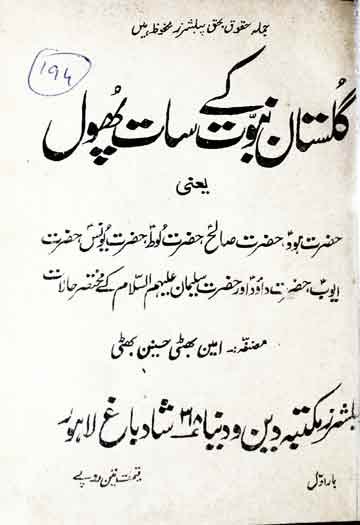 جملہ حقوق بحق پبلشرز محفوظ ہیں
194
گلستان نبوّت کے سات پھول
یعنی
حضرت ہودؑ، حضرت صالحؑ، حضرت لوطؑ، حضرت یونسؑ، حضرت
ایوبؑ، حضرت داؤدؑ اور حضرت سلیمان علیہم السلام کے مختصر حالات
مصنفہ:۔ امین بھٹی حسنین بھٹی
پبلشرز مکتبہ دین و دنیا ۲۶۸ شاد باغ لاہور
بار اوّل
قیمت تین روپے